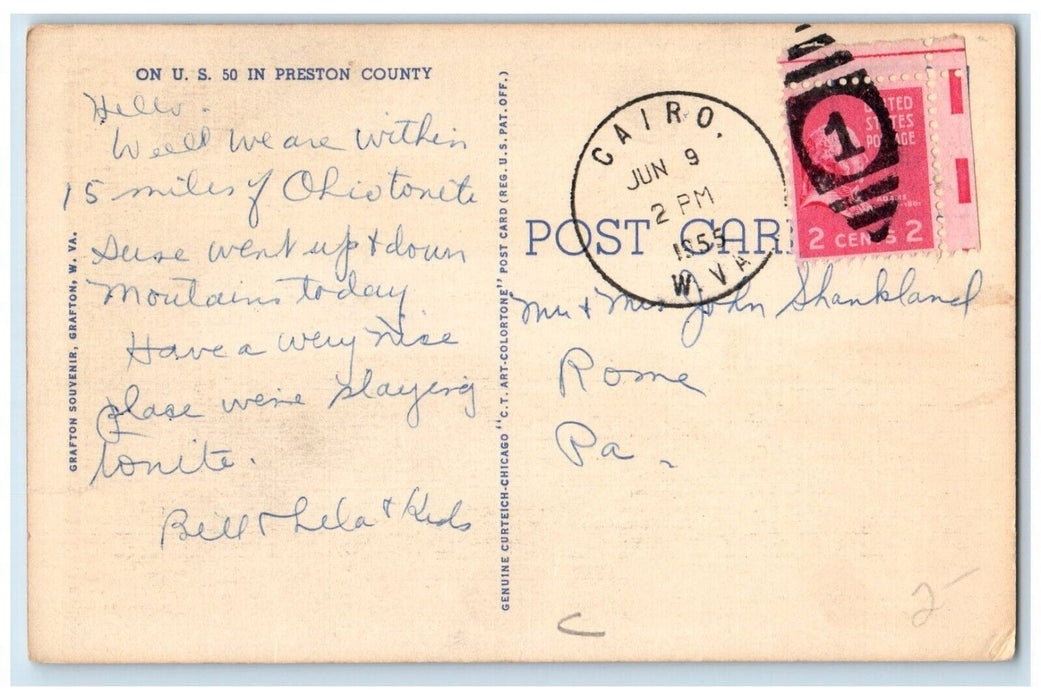 ON U. S. 50 IN PRESTON COUNTY
Hello.
Well we are within
15 miles of Ohio tonite
Suse went up & down
Moutains today
Have a very nise
plase we're staying
tonite.
Bill & Lela & Kids
GRAFTON SOUVENIR, GRAFTON, W. VA.
GENUINE CURTEICH-CHICAGO "C.T. ART-COLORTONE" POST CARD (REG. U. S. PAT. OFF.)
POST CARD
CAIRO,
JUN 9
2 PM
1955
W. VA
1
UNITED
STATES
POSTAGE
ADAMS
2 CENTS 2
Mr & Mrs John Shankland
Rome
Pa.
2